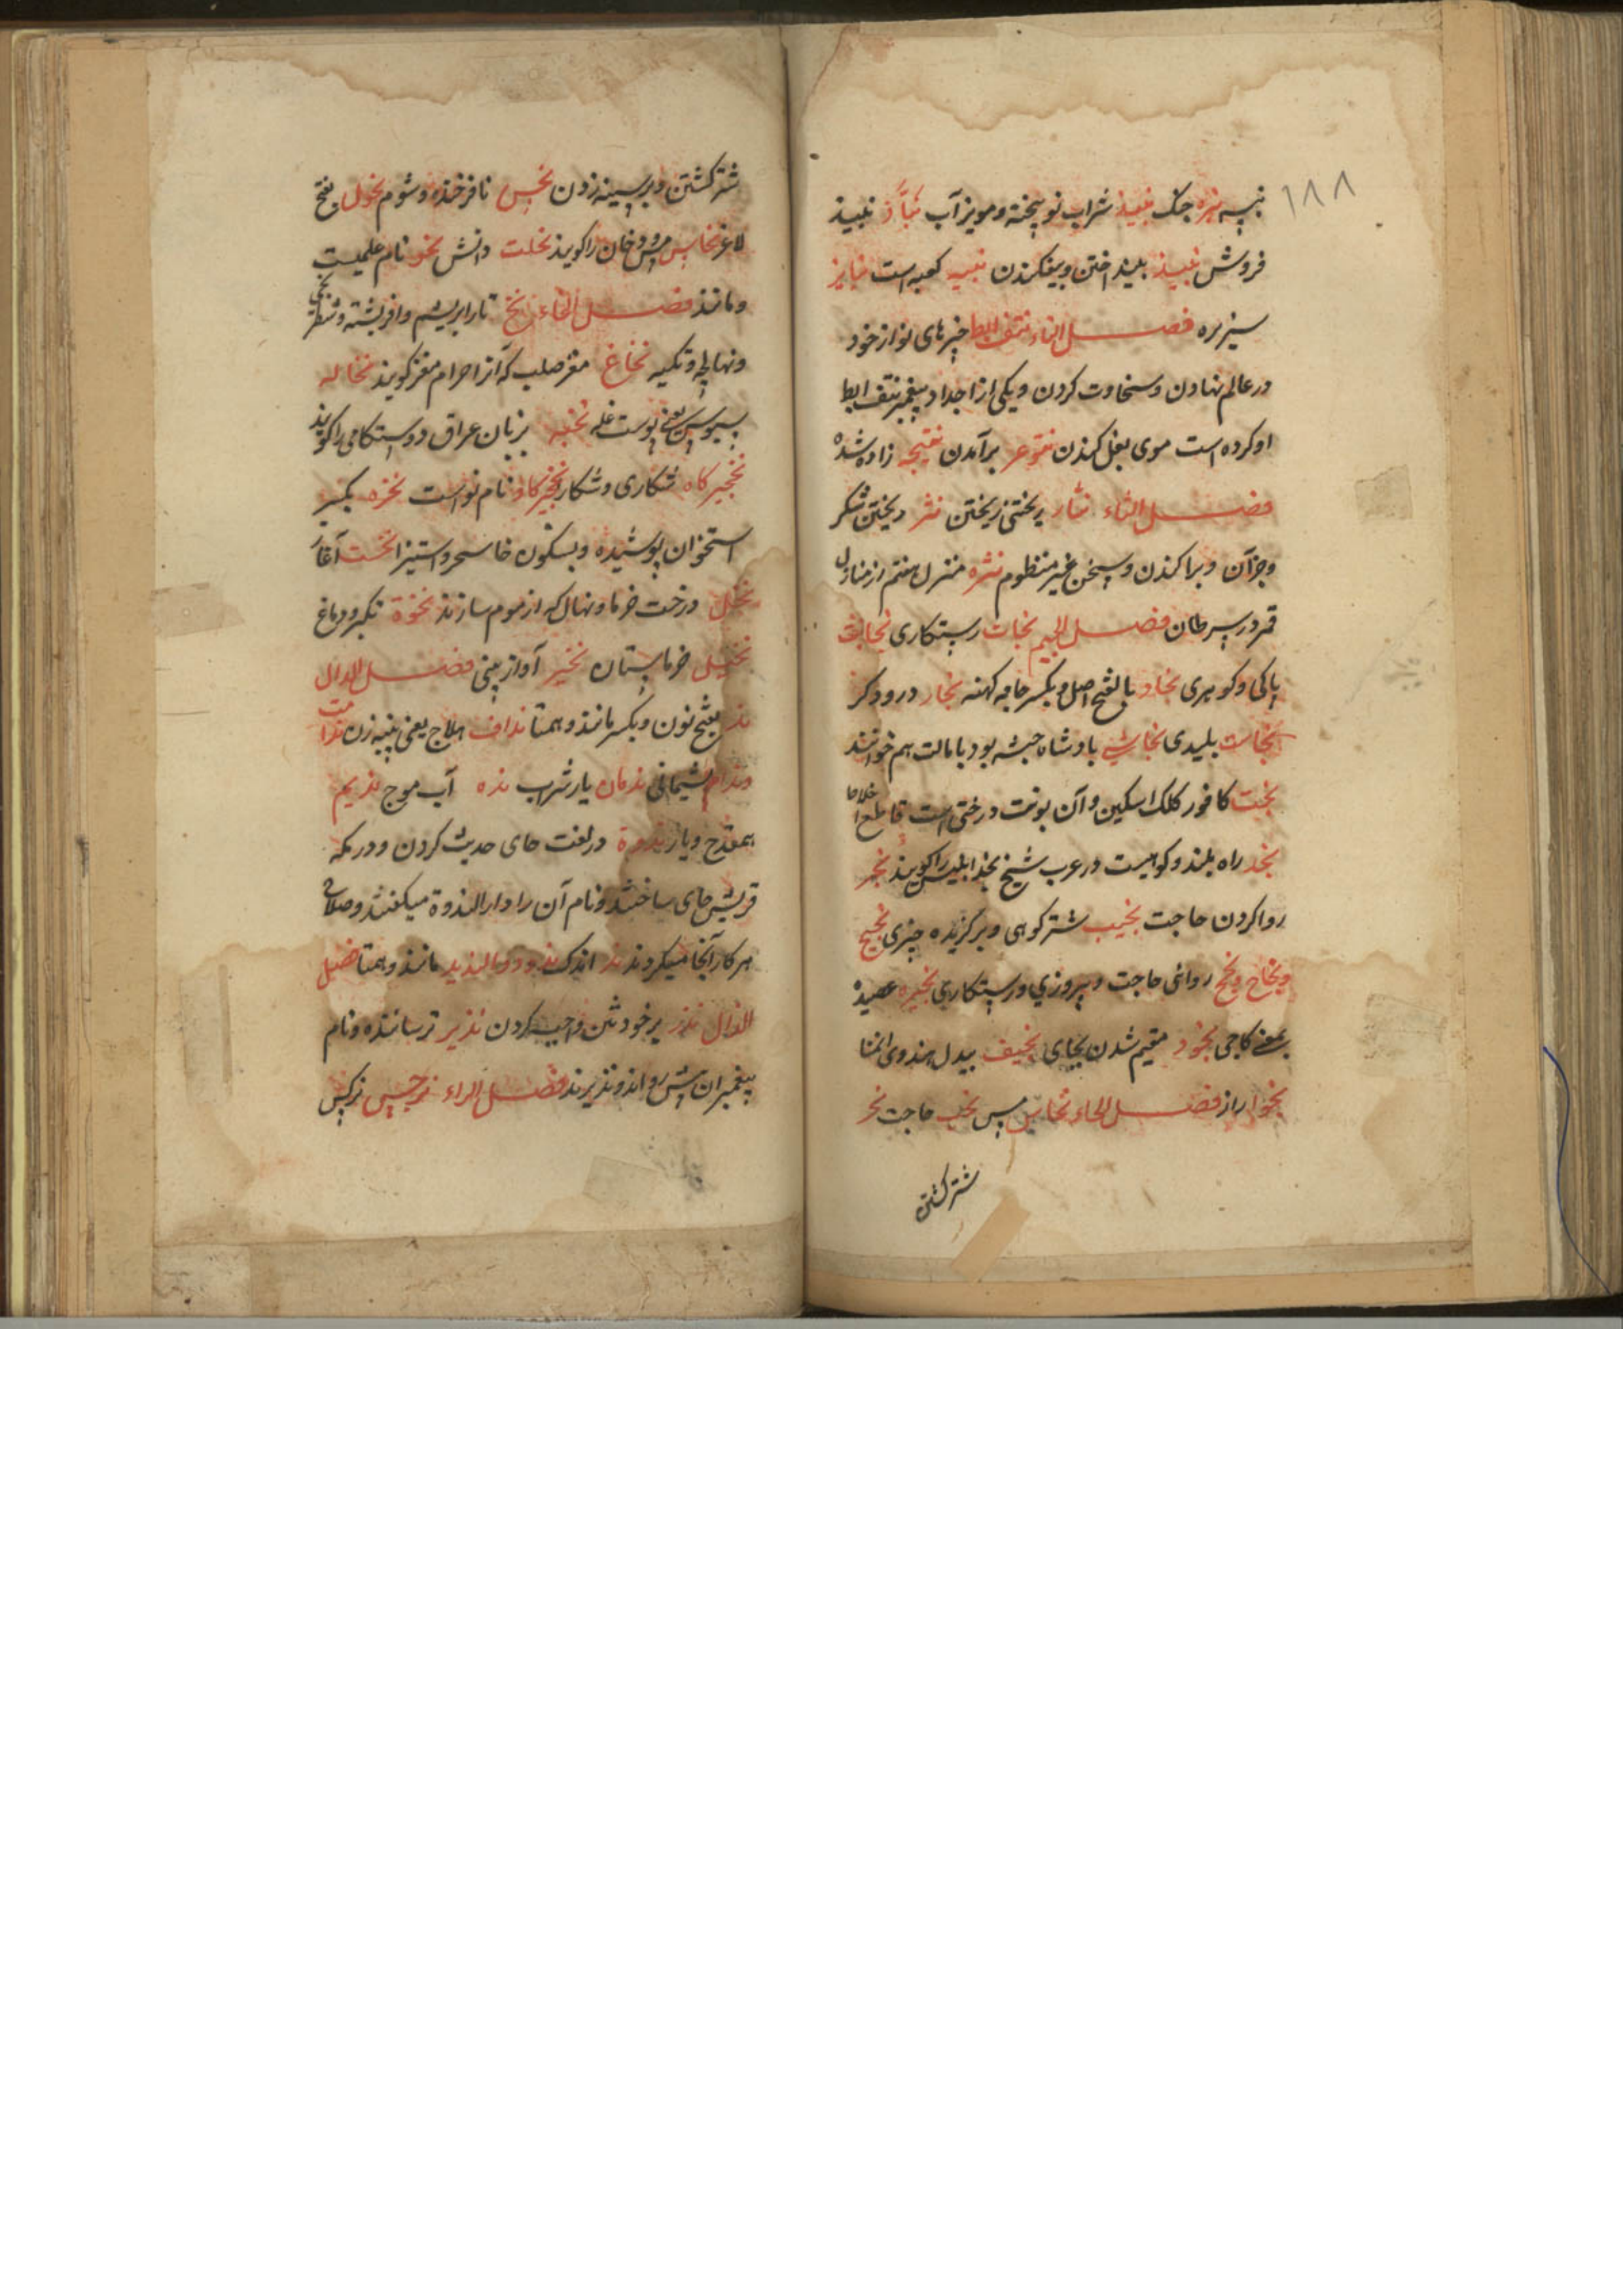 ۱۸۸
نبسه نبره جنک نبیذ شراب نو پخته و مویز آب نبّاذ نبیذ
فروش نبیذ بیند اختن و بیفکندن نبیه کعبه است
سیزیره فصل التاء نتف ابط خیرهای نو از خود
در عالم نهادن و سخاوت کردن و یکی از اجداد پیغمبر نتف ابط
او کرده است موی بغل کندن برآمدن نتیجه زاده شده
فصل الثاء نثار ریختنی ریختن نثر ریختن شکر
و جز آن و پراکندن و سخن غیر منظوم نثره منزل هفتم از منازل
قمر در سرطان فصل الجیم نجات رستکاری نجابت
پاکی و کوهری نجاد بالفتح اصل و بکسر جامه کهنه نجار درودکر
نجاست پلیدی نجاشی پادشاه حبشه بود با مالت هم خوانند
کافور کلک اسکین و آن پوست درختی است قاطع اخلاط
نجد راه بلند و کوهیست در عرب شیخ نجد ابلیس را کویند نجز
روا کردن حاجت نجیب شتر کوهی و برکزیده چیزی نجیح
و نجاح و نجح روائی حاجت و پیروزی و رستکاری نجیره عصیده
یعنی کاجی نجود مقیم شدن بجای نجیف بیدل هندوی انمنا
نجوا راز فصل الحاء نحاس مس نحب حاجت نحر
شتر کشتن
شتر کشتن و بر سینه زدن نحس نافرخنده و شوم نحول بفتح
لاغر نخاس مس فروش و خان را کویند نحلت دانش نحو نام علمیست
و مانند فصل الخاء نخ تار ابریشم و افریشته و شطرنجی
و نهالچه و تکیه نخاع مغز صلب که آنرا حرام مغز کویند نخاله
سبوس یعنی پوست غله نخبه بزبان عراق دوستکامی را کویند
نخجیرکاه شکاری و شکار نخجیرکاو نام نواست نخره بکسر
استخوان پوشیده و بسکون خا سحر و استیزا نخست آغاز
نخل درخت خرما و نهال که از موم سازند نخوة تکبر و دماغ
نخیل خرماستان نخیر آواز بینی فصل الدال
ند بفتح نون و بکسر مانند و همتا نداف حلاج یعنی پنبه زن ندامت
و ندام پشیمانی ندمان یار شراب نده آب موج ندیم
همقدح و یار ندوة در لغت جای حدیث کردن و در مکه
قریش جای ساختند و نام آن را دار الندوة میکفتند و صلاح
هر کار آنجا میکردند نذر اندک ند و ندما الندید مانند و همتا فصل
الذال نذر بر خودشن واجب کردن نذیر ترساننده و نام
پیغمبران پیش رو اند و نذیرند فصل الراء نرجس نرکس